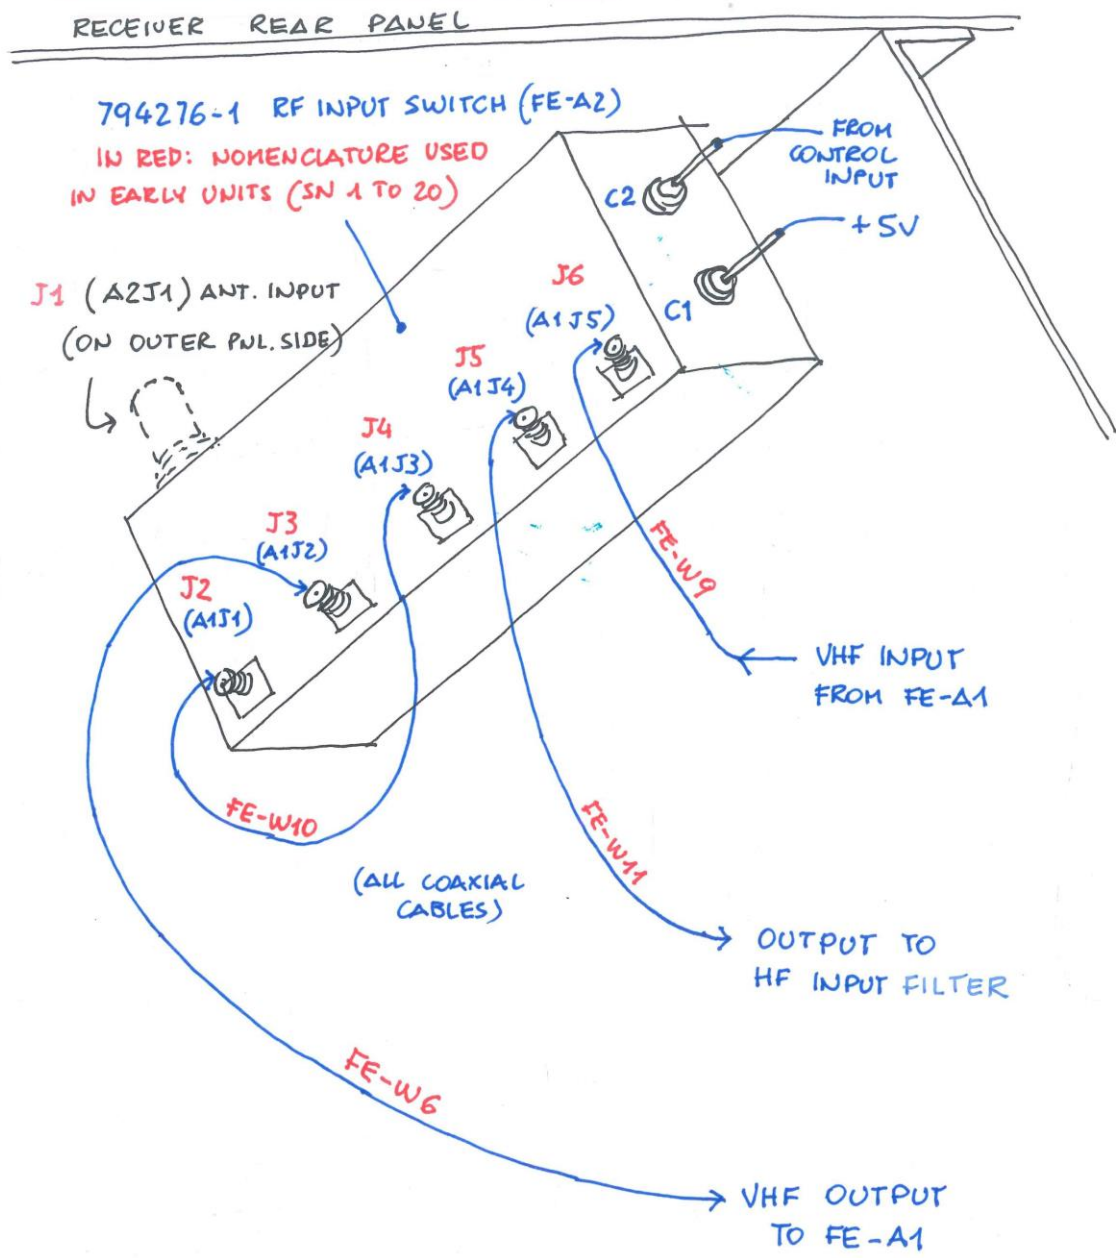 RECEIVER REAR PANEL
794276-1 RF INPUT SWITCH (FE-A2)
IN RED: NOMENCLATURE USED
IN EARLY UNITS (SN 1 TO 20)
FROM
CONTROL
INPUT
C2
+5V
C1
J1 (A2J1) ANT. INPUT
(ON OUTER PNL. SIDE)
J6
(A1J5)
J5
(A1J4)
J4
(A1J3)
J3
(A1J2)
J2
(A1J1)
FE-W9
VHF INPUT
FROM FE-A1
FE-W10
FE-W11
(ALL COAXIAL
CABLES)
OUTPUT TO
HF INPUT FILTER
FE-W6
VHF OUTPUT
TO FE-A1